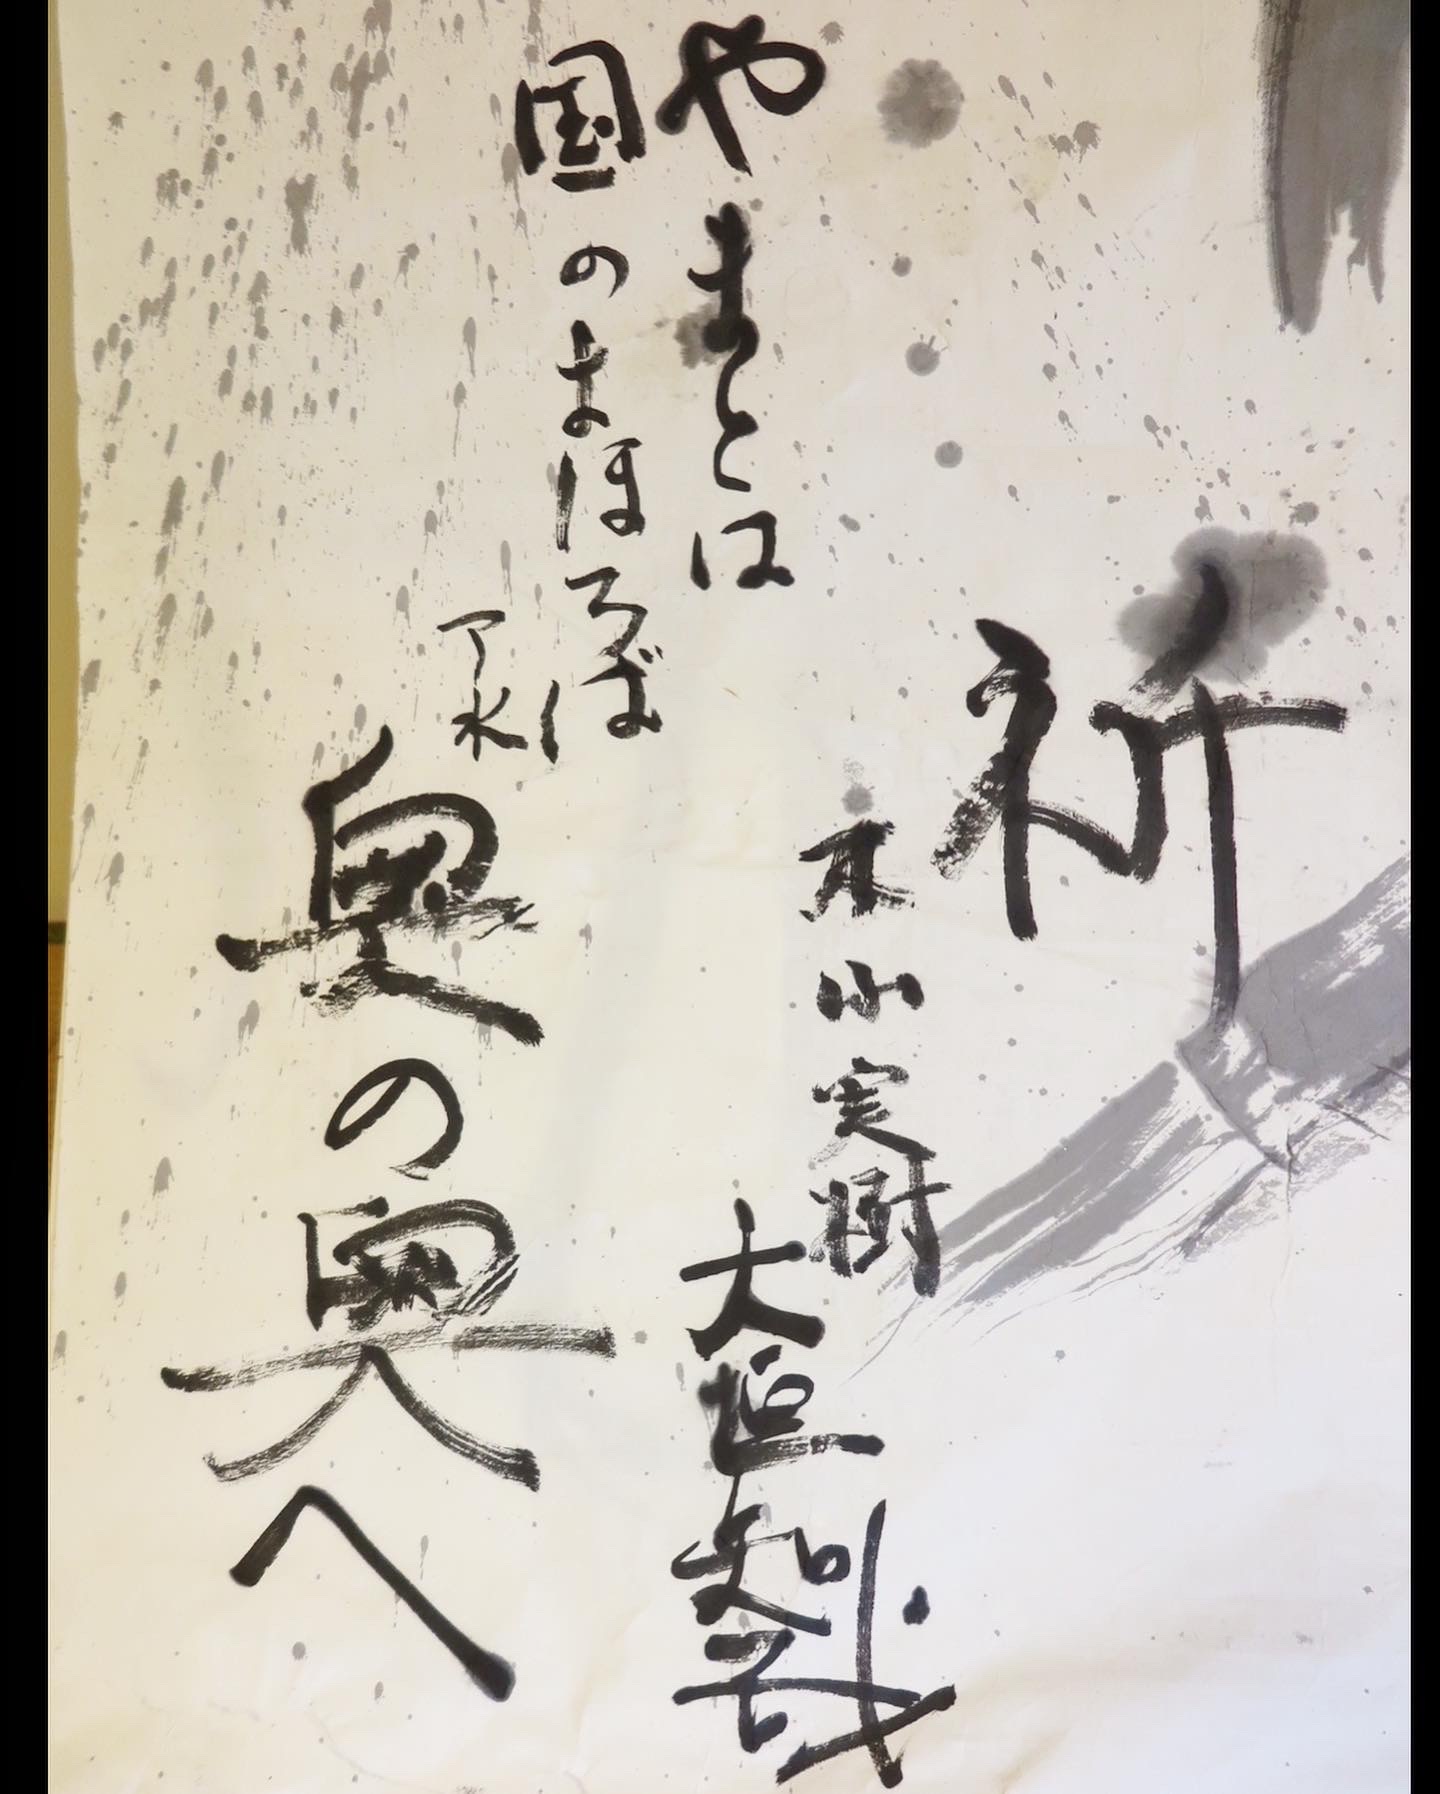 祈
木山実樹
大垣知哉
やまとは
国のまほろば
奥の奥へ